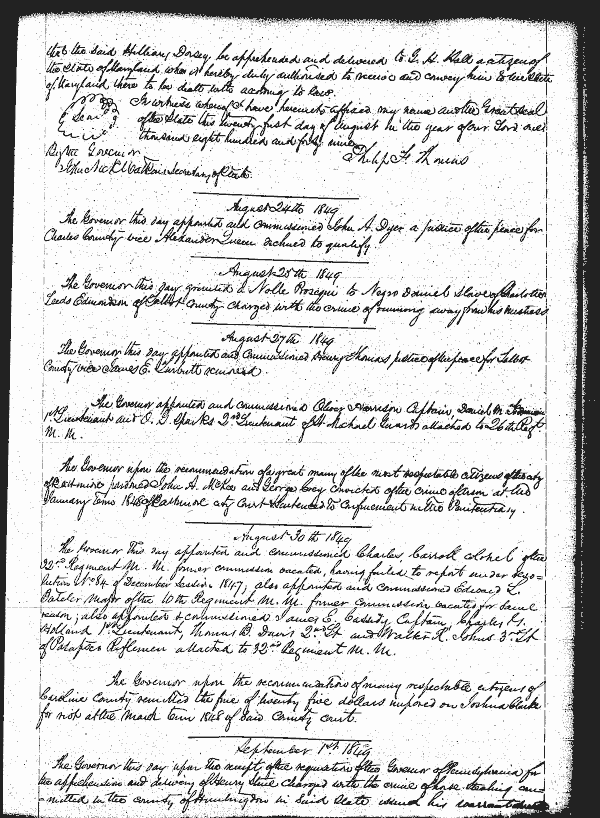 that the said William Dorsey, be apprehended and delivered to G. H. Hall a citizen of
the State of Maryland who is hereby duly authorised to receive and convey him to the State
of Maryland there to be dealt with according to law.
In witness whereof I have hereunto affixed my name and the Great Seal
of the State this twenty first day of August in the year of our Lord one
thousand eight hundred and forty nine
Philip F. Thomas
By the Governor
Secretary of State
August 24th 1849
The Governor this day appointed and commissioned John A. Dyer a justice of the peace for
Charles County vice Alexander declined to qualify
August 25th 1849
The Governor this day granted a Nolle Prosequi to Negro Daniel Slave of Charlotte
Leeds Edmondson of Talbot County charged with the crime of running away from his mistress
August 27th 1849
The Governor this day appointed and Commissioned Henry Thomas justice of the peace for Talbot
County vice James E. removed.
The Governor appointed and commissioned Oliver Harrison Captain, Daniel M.
1st Lieutenant and O. D. Sparks 2nd Lieutenant of St Michael Guards attached to 26th Regt
M. M.
The Governor upon the recommendation of a great many of the most respectable citizens of the city
of Baltimore pardoned John A. McKee and George convicted of the crime of arson at the
January term 1848 of Baltimore City Court & Sentenced to Confinement in the Penitentiary
August 30th 1849
The Governor this day appointed and commissioned Charles Carroll Colonel of the
32nd Regiment M. M. former commission vacated, having failed to report under Reso=
lution No 84 of December Session 1847; also appointed and Commissioned Edward L.
Major of the 10th Regiment M. M. former commission vacated for same
reason; also appointed & commissioned James E. Cassidy Captain, Charles H.
Holland 1st Lieutenant, Thomas B. Davis 2nd Lt and Walter R. Johns 3rd Lt
of Patapsco Riflemen attached to 32nd Regiment M. M.
The Governor upon the recommendation of many respectable citizens of
Caroline County remitted the fine of twenty five dollars imposed on Joshua Clarke
for riot at the March term 1848 of said County Court.
September 1st 1849
The Governor this day upon the receipt of the requisition of the Governor of Pennsylvania for
the apprehension and delivery of Henry charged with the crime of horse stealing com
-mitted in the county of Huntingdon in said State issued his warrant